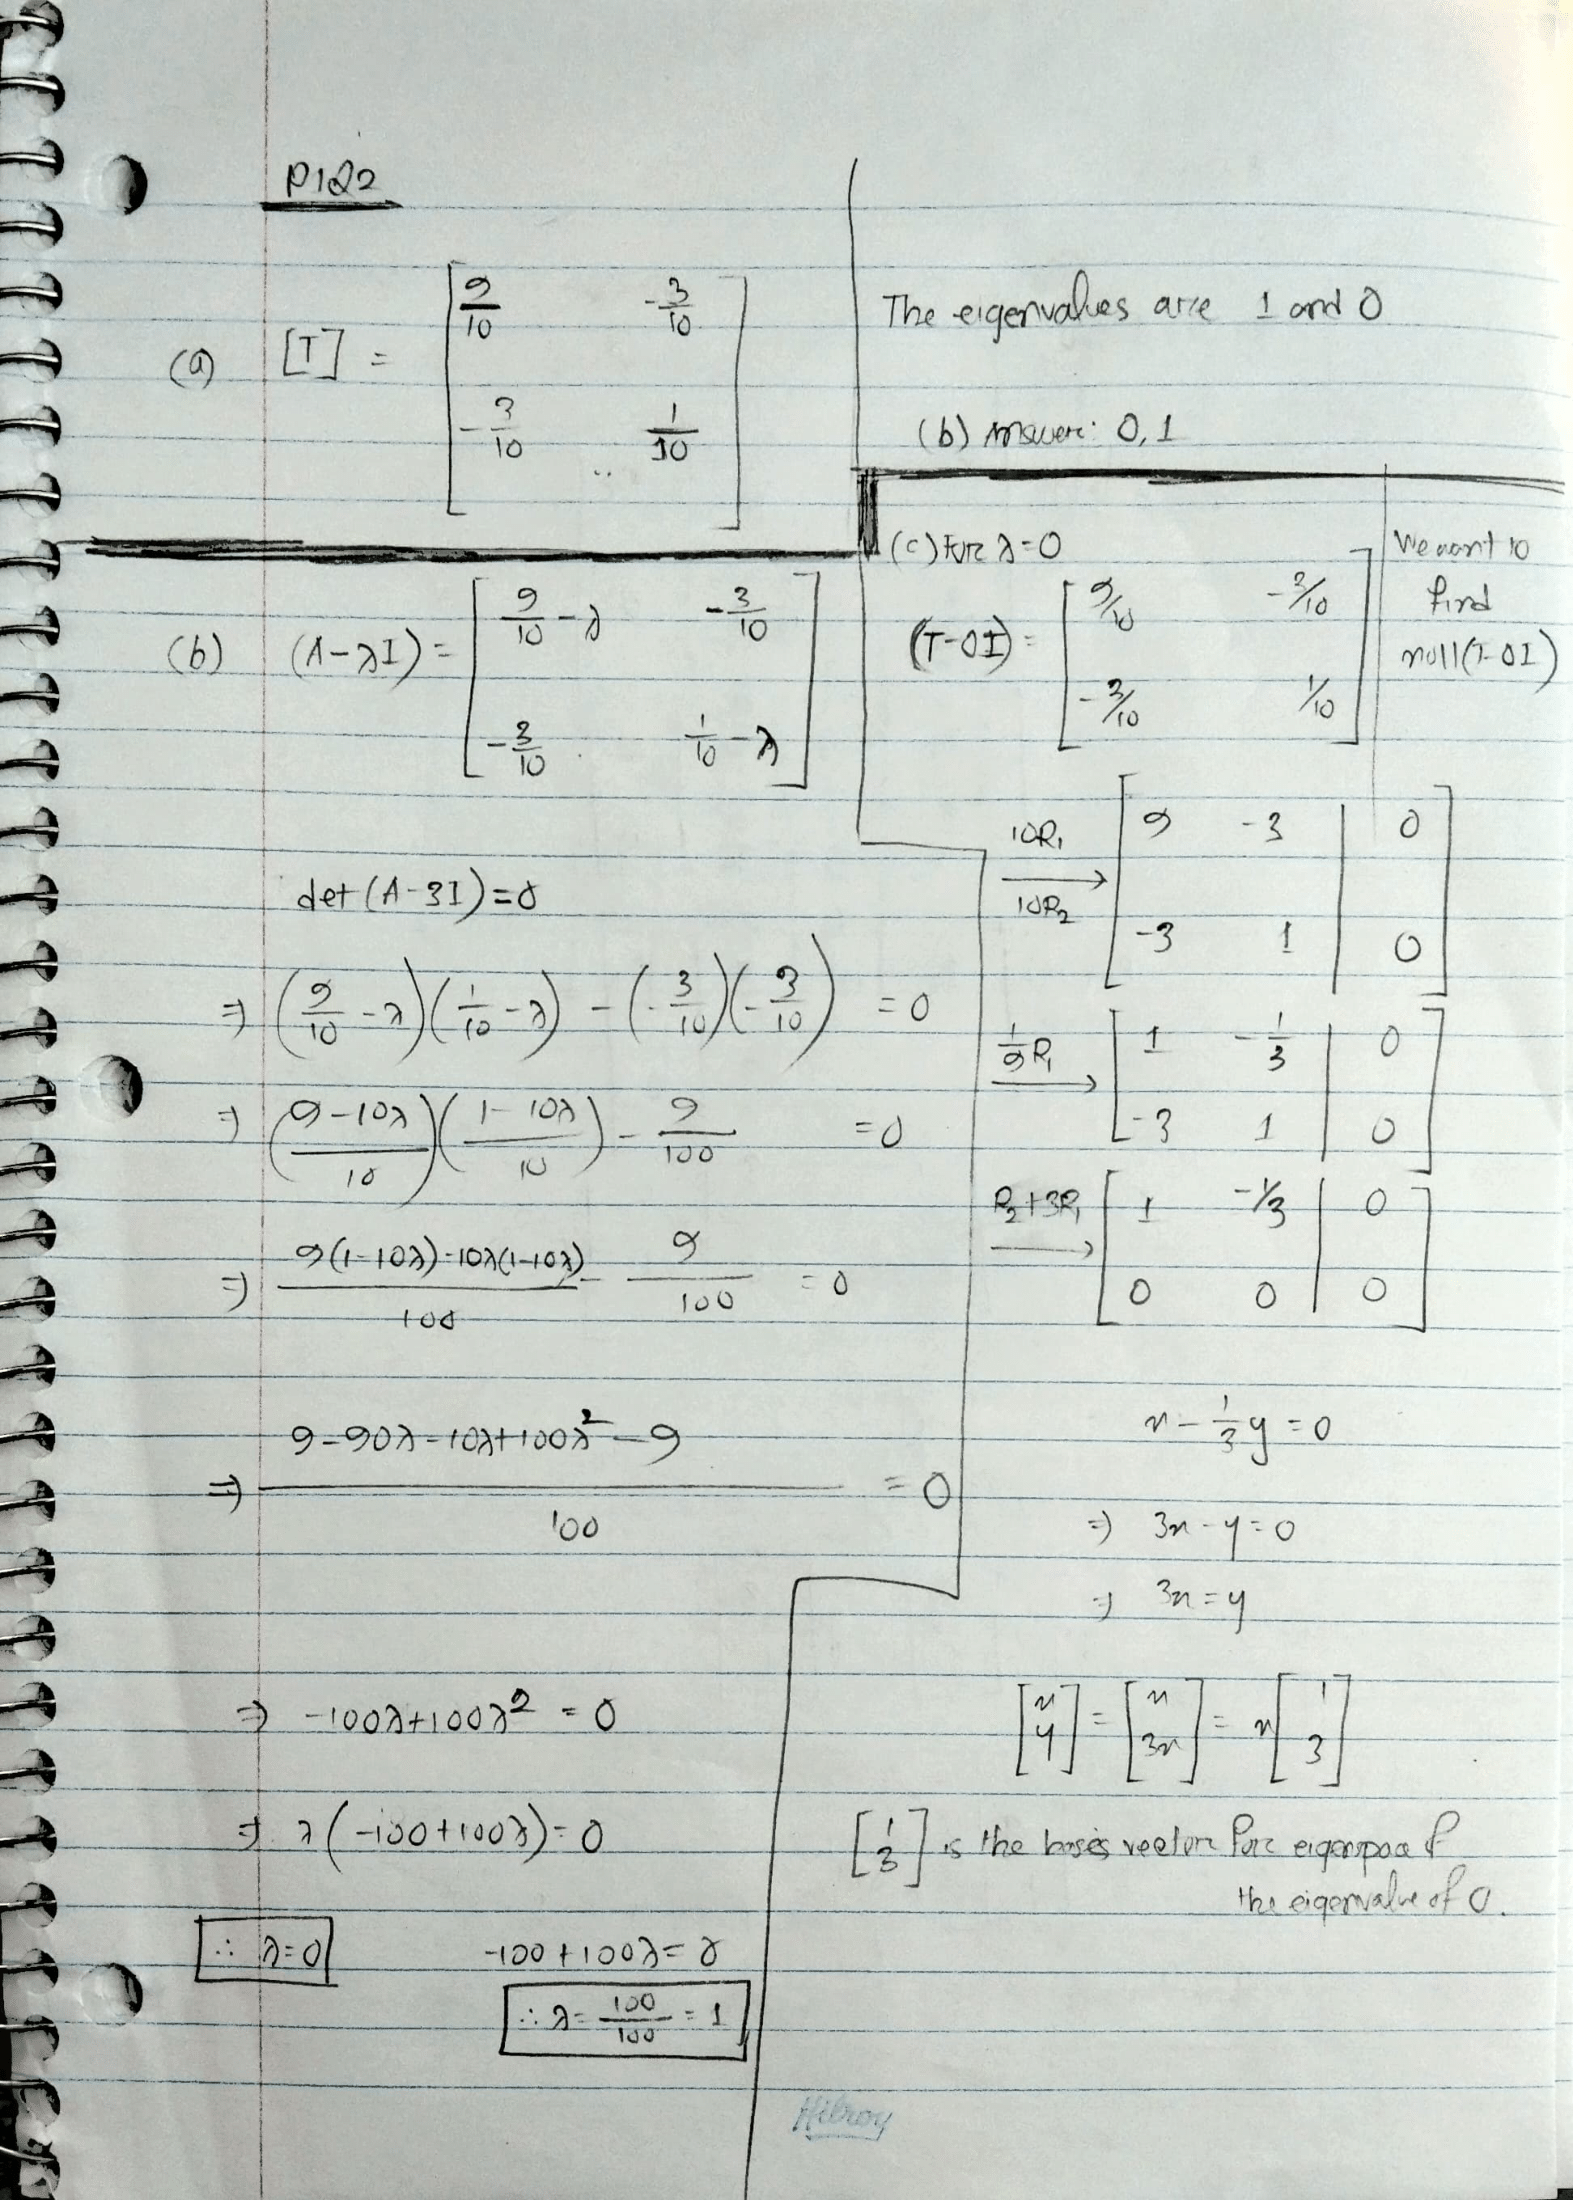 P1Q2
(a) [T] = [ 9/10 -3/10
-3/10 1/10 ]
(b) (A-λI) = [ 9/10 - λ -3/10
-3/10 1/10 - λ ]
det (A-λI)=0
⇒ (9/10 - λ)(1/10 - λ) - (-3/10)(-3/10) = 0
⇒ ((9-10λ)/10)((1-10λ)/10) - 9/100 = 0
⇒ (9(1-10λ)-10λ(1-10λ))/100 - 9/100 = 0
⇒ (9-90λ-10λ+100λ²-9)/100 = 0
⇒ -100λ+100λ² = 0
⇒ λ(-100+100λ)=0
∴ λ=0
-100+100λ=0
∴ λ= 100/100 = 1
The eigenvalues are 1 and 0
(b) Answer: 0, 1
(c) For λ=0
(T-0I) = [ 9/10 -3/10
-3/10 1/10 ]
We want to
find
null(T-0I)
10R₁
10R₂
→ [ 9 -3 | 0
-3 1 | 0 ]
1/9 R₁ → [ 1 -1/3 | 0
-3 1 | 0 ]
R₂+3R₁ → [ 1 -1/3 | 0
0 0 | 0 ]
x - 1/3 y = 0
⇒ 3x-y=0
⇒ 3x=y
[x y] = [x 3x] = x[1 3]
[1 3] is the basis vector for eigenspace of
the eigenvalue of 0.
Hilroy